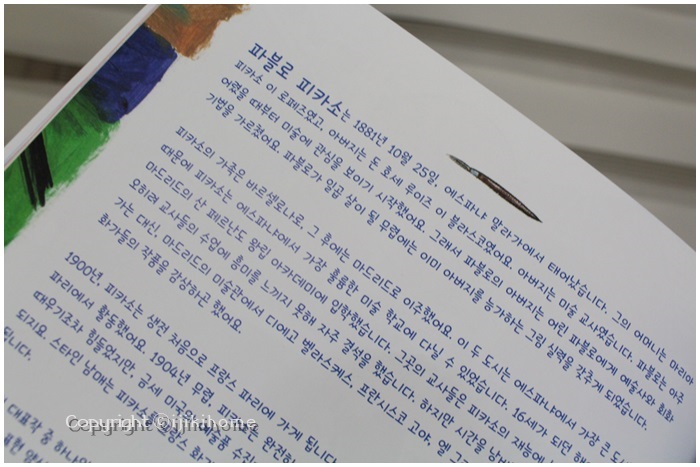 파블로 피카소는 1881년 10월 25일, 에스파냐 말라가에서 태어났습니다. 그의 어머니는 마리아
피카소 이 로페즈였고, 아버지는 돈 호세 루이즈 이 블라스코였어요. 아버지는 미술 교사였습니다. 파블로는 아주
어렸을 때부터 미술에 관심을 보이기 시작했어요. 그래서 파블로의 아버지는 어린 파블로에게 예술사와 회화
기법을 가르쳤어요. 파블로가 일곱 살이 될 무렵에는 이미 아버지를 능가하는 그림 실력을 갖추게 되었습니다.
피카소의 가족은 바르셀로나로, 그 후에는 마드리드로 이주했어요. 이 두 도시는 에스파냐에서 가장 큰
때문에 피카소는 에스파냐에서 가장 훌륭한 미술 학교에 다닐 수 있었습니다. 16세가 되던
마드리드의 산 페르난도 왕립 아카데미에 입학했습니다. 그곳의 교사들은 피카소의 재능에
오히려 교사들의 수업에 흥미를 느끼지 못해 자주 결석을 했습니다. 하지만 시간을
가는 대신, 마드리드의 미술관에서 디에고 벨라스케스, 프란시스코 고야, 엘
화가들의 작품을 감상하곤 했어요.
1900년, 피카소는 생전 처음으로 프랑스 파리에 가게 됩니다.
파리에서 활동했어요. 1904년 무렵, 피카소는 완전히
때우기조차 힘들었지만, 금세 미국
되지요. 스타인 남매는 피카소
됩니다.
대표작 중 하나인
Copyright © ijikihome